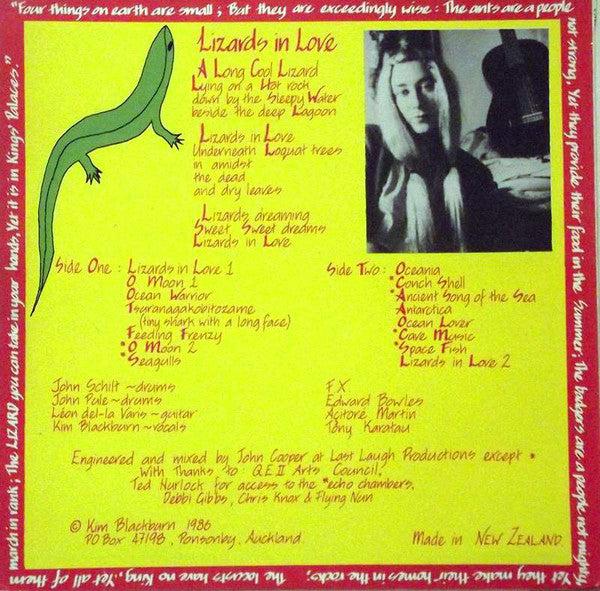 "Four things on earth are small ; But they are exceedingly wise : The ants are a people
not strong, Yet they provide their food in the Summer; The badgers are a people not mighty,
Yet they make their homes in the rocks; The locusts have no King, Yet all of them
march in rank ; The LIZARD you can take in your hands, Yet it is in Kings' Palaces."
Lizards in Love
A Long Cool Lizard
Lying on a Hot rock
down by the Sleepy Water
beside the deep Lagoon
Lizards in Love
Underneath Loquat trees
in amidst
the dead
and dry leaves
Lizards dreaming
Sweet, Sweet dreams
Lizards in Love
Side One : Lizards in Love 1
O Moon 1
Ocean Warrior
Tsuranagakobitozame
(tiny shark with a long face)
Feeding Frenzy
*O Moon 2
*Seagulls
Side Two : Oceania
*Conch Shell
*Ancient Song of the Sea
Antarctica
Ocean Lover
*Cave Music
*Space Fish
Lizards in Love 2
John Schilt ~drums
John Pule ~drums
Léon del-la Varis ~guitar
Kim Blackburn ~vocals
F.X.
Edward Bowles
Acitore Martin
Tony Karatau
Engineered and mixed by John Cooper at Last Laugh Productions except *
With Thanks to Q.E.II Arts Council,
Ted Nurlock for access to the *echo chambers,
Debbi Gibbs, Chris Knox & Flying Nun
© Kim Blackburn 1986
PO Box 47198, Ponsonby, Auckland.
Made in NEW ZEALAND